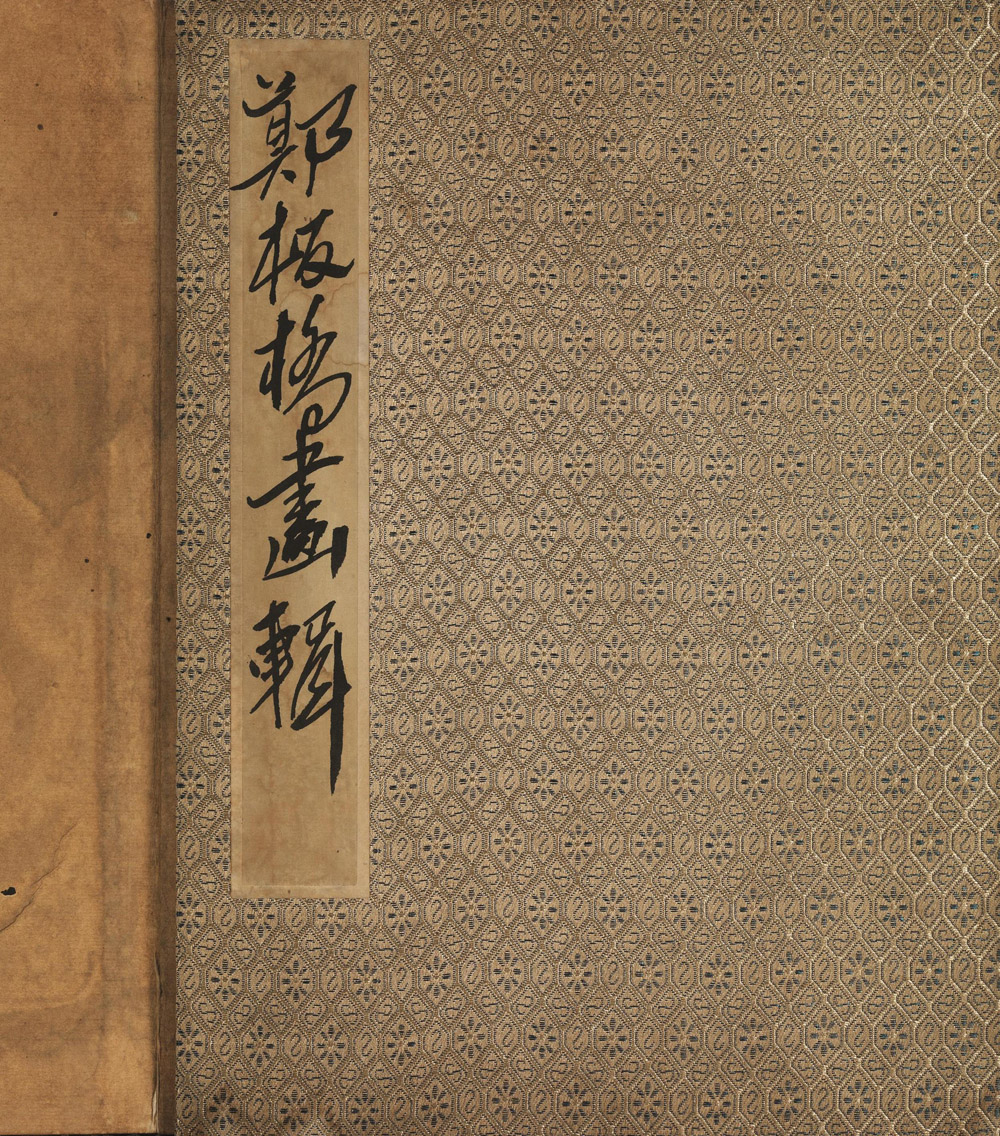 鄭板橋畫輯